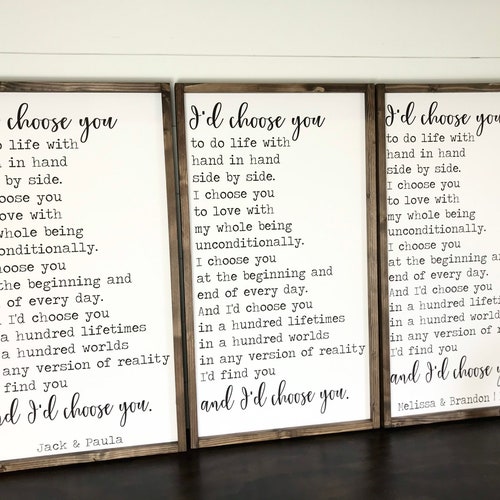 choose you
o do life with
in hand
by side.
oose you
ove with
whole being
onditionally.
oose you
the beginning and
of every day.
I'd choose you
a hundred lifetimes
a hundred worlds
any version of reality
find you
nd I'd choose you.
Jack & Paula
I'd choose you
to do life with
hand in hand
side by side.
I choose you
to love with
my whole being
unconditionally.
I choose you
at the beginning and
end of every day.
And I'd choose you
in a hundred lifetimes
in a hundred worlds
in any version of reality
I'd find you
and I'd choose you.
I'd choose you
to do life with
hand in hand
side by side.
I choose you
to love with
my whole being
unconditionally.
I choose you
at the beginning and
end of every day.
And I'd choose you
in a hundred lifet
in a hundred world
in any version of
I'd find you
and I'd choose y
Melissa & Brandon